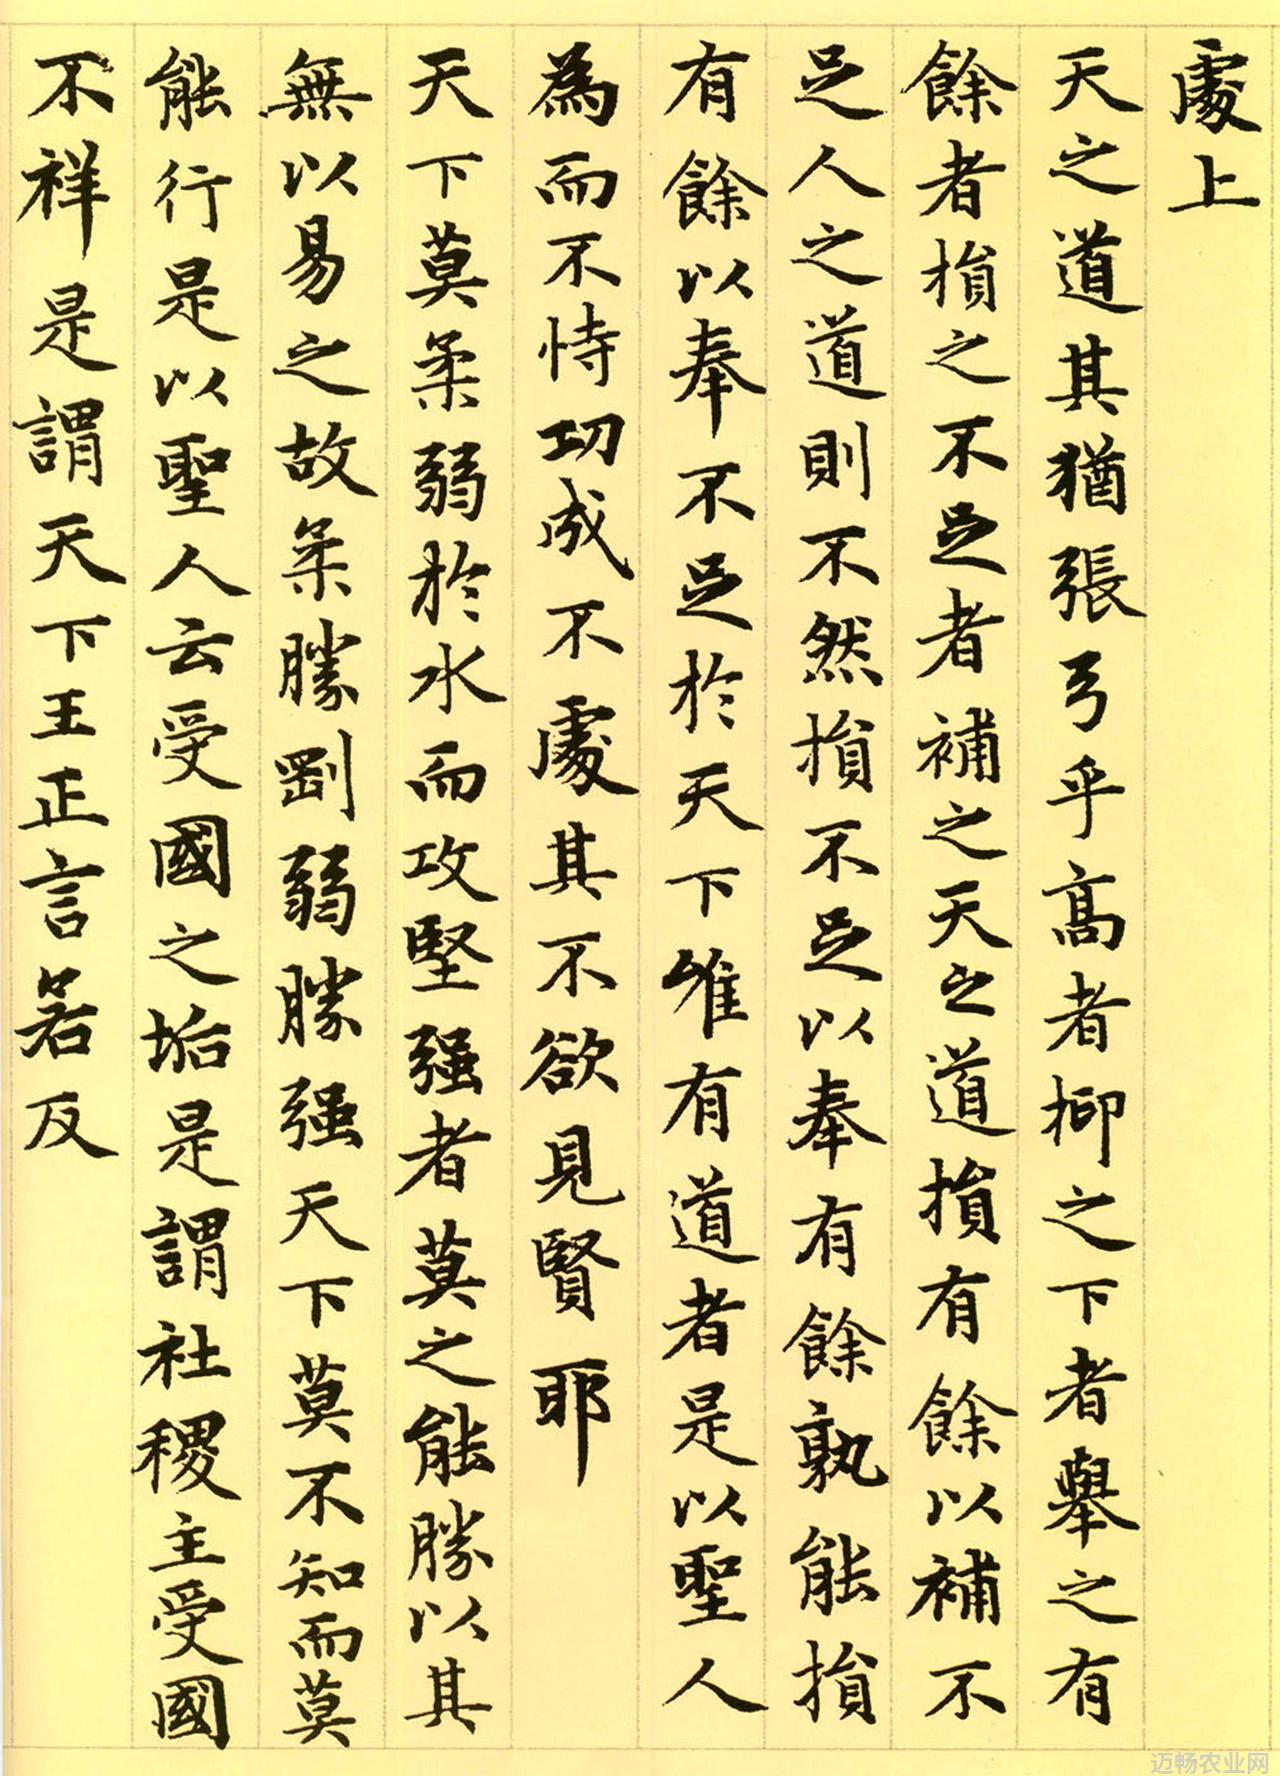 處上
天之道其猶張弓乎高者抑之下者舉之有
餘者損之不足者補之天之道損有餘以補不
足人之道則不然損不足以奉有餘孰能損
有餘以奉不足於天下唯有道者是以聖人
為而不恃功成不處其不欲見賢耶
天下莫柔弱於水而攻堅强者莫之能勝以其
無以易之故柔勝剛弱勝强天下莫不知而莫
能行是以聖人云受國之垢是謂社稷主受國
不祥是謂天下王正言若反
迈畅农业网